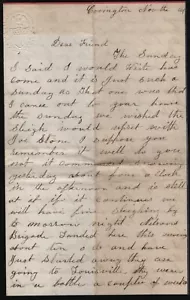 Covington Nov the
Dear Friend
The Sunday
I said I would write has
come and it is Just such a
Sunday as that one was that
I came out to your house
the sunday we wished the
Sleigh would upset with
Joe Stone I suppose you
remember it well do you
not it commenced snowing
yesterday about four o clock
in the afternoon and is still
at it if it continues we
will have fine sleighing by
to morrow night
Brigade landed here this morn
about two o clo and have
Just started away they are
going to Louisville they were
in a battle a couple of weeks